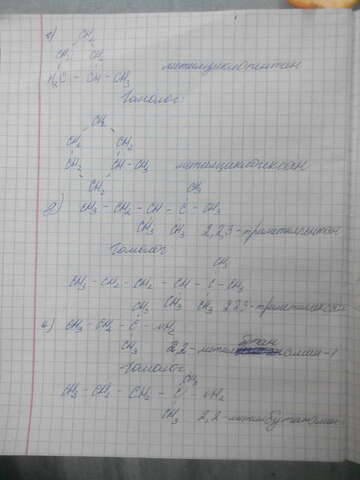 CH₂
CH₂ CH₂
H₂C - CH - CH₃ метилциклопентан
Гомолог:
CH₂
CH₂ CH₂
CH₂ CH - CH₃ метилциклогексан
CH₂
CH₃
д) CH₃ - CH₂ - CH - C - CH₃
CH₃ CH₃ 2,2,3-триметилпентан
Гомолог
CH₃
CH₃ - CH₂ - CH₂ - CH - C - CH₃
CH₃ CH₃ CH₃ 2,2,3-триметилгексан
е) CH₃ - CH₂ - C - NH₂
CH₃ 2,2-метил бутан
Гомолог
CH₃
CH₃ - CH₂ - CH₂ - C - NH₂
CH₃ 2,2-метил